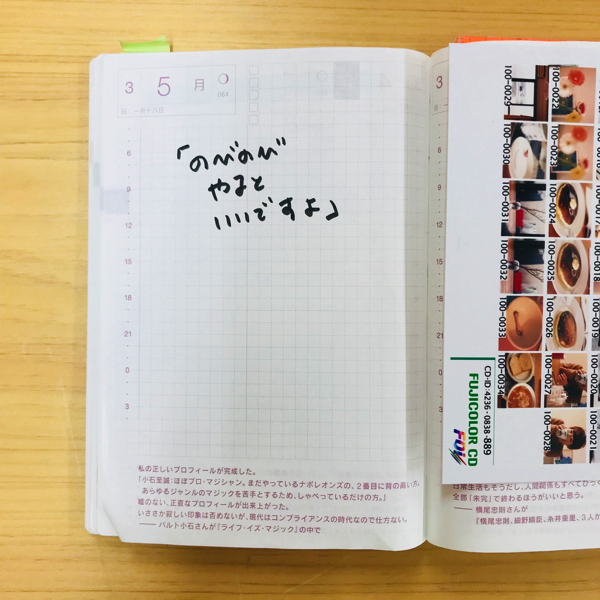 3 5 月
064
6
9
12
15
18
21
0
3
「のびのび
やると
いいですよ」
私の正しいプロフィールが完成した。
「小石至誠：ほぼプロ・マジシャン。まだやっているナポレオンズの、２番目に背の高い方。
あらゆるジャンルのマジックを苦手とするため、しゃべっているだけの方。」
嘘のない、正直なプロフィールが出来上がった。
いささか寂しい印象は否めないが、現代はコンプライアンスの時代なので仕方ない。
――パルト小石さんが『ライフ・イズ・マジック』の中で
3
100-0029
100-0022
100-0030
100-0023
100-0031
100-0024
100-0017
100-0032
100-0025
100-0018
100-0033
100-0026
100-0019
100-0034
100-0027
100-0020
100-0028
100-0021
CD-ID:4236-0838-889
FUJICOLOR CD
日常生活もそうだし、人間関係もすべてひっく
全部「未完」で終わるほうがいいと思う。
――横尾忠則さんが
『横尾忠則、細野晴臣、糸井重里、３人が